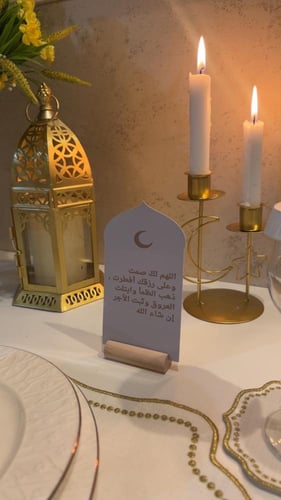 اللهم لك صمت
وعلى رزقك أفطرت ،
ذهب الظمأ وابتلت
العروق وثبت الأجر
إن شاء الله